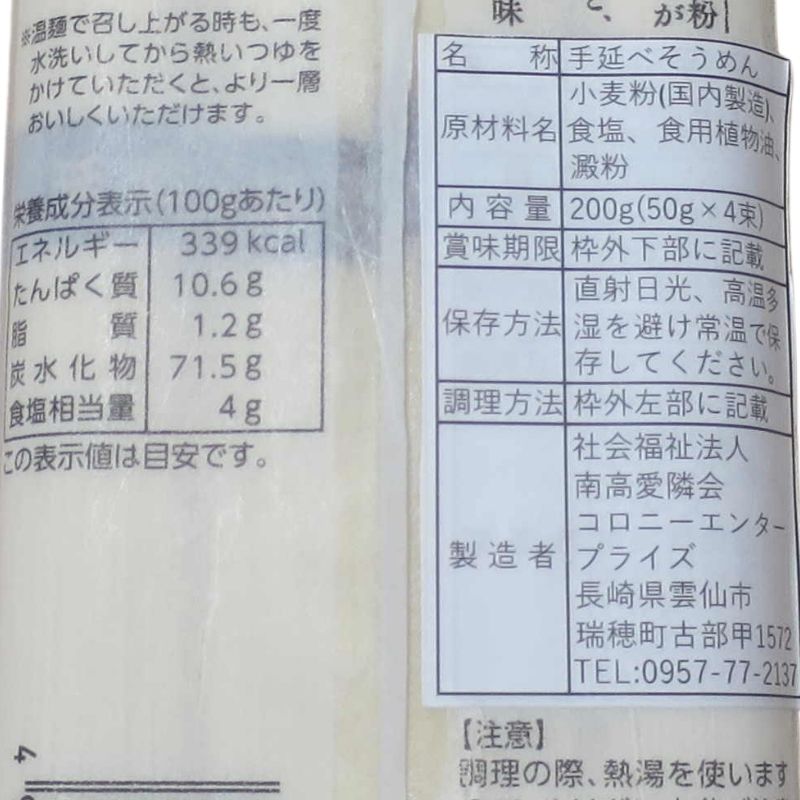 ※温麺で召し上がる時も、一度
水洗いしてから熱いつゆを
かけていただくと、より一層
おいしくいただけます。
栄養成分表示(100gあたり)
エネルギー 339kcal
たんぱく質 10.6g
脂質 1.2g
炭水化物 71.5g
食塩相当量 4g
この表示値は目安です。
4
味 と、が粉
名称 手延べそうめん
原材料名 小麦粉(国内製造)、
食塩、食用植物油、
澱粉
内容量 200g(50g×4束)
賞味期限 枠外下部に記載
保存方法 直射日光、高温多
湿を避け常温で保
存してください。
調理方法 枠外左部に記載
製造者 社会福祉法人
南高愛隣会
コロニーエンター
プライズ
長崎県雲仙市
瑞穂町古部甲1572
TEL:0957-77-2137
【注意】
調理の際、熱湯を使います